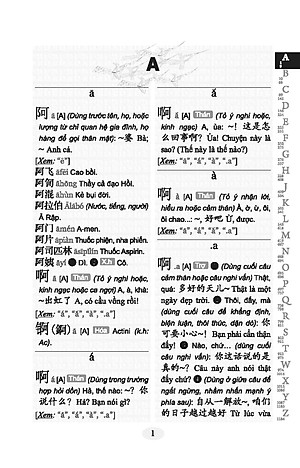 A
ā
阿 ā [A] (Dùng trước tên, họ, hoặc
lượng từ chỉ quan hệ gia đình, họ
hàng để gọi thân mật): ~婆 Bà;
~ Anh cả.
[Xem: "ē"]
阿飞 āfēi Cao bồi.
阿訇 āhōng Thầy cả đạo Hồi.
阿混 āhùn Kẻ bụi đời.
阿拉伯 Ālābó (Nước, tiếng, người)
Ả Rập.
阿门 āmén A-men.
阿片 āpiàn Thuốc phiện, nha phiến.
阿司匹林 āsīpǐlín Thuốc Aspirin.
阿姨 āyí ❶ Dì. ❷ Cô.
啊 ā [A] Thán (Tỏ ý nghi hoặc,
kinh ngạc hoặc ca ngợi) A, à, khà:
~出虹了 A, có cầu vồng rồi!
[Xem: "á", "ǎ", "à", ".a"]
锕(錒) ā [A] Hóa Actini (k.h:
Ac).
á
啊 á [A] Thán (Dùng trong trường
hợp hỏi dồn) Hả, thế nào: ~? 你
说什么? Hả? Bạn nói gì?
[Xem: "ā", "ǎ", "à", ".a"]
ǎ
啊 ǎ [A] Thán (Tỏ ý nghi hoặc,
kinh ngạc) A, ủa: ~! 这是怎
么回事啊? Ủa! Chuyện này là
sao? (Thế này là thế nào?)
[Xem: "ā", "á", "à", ".a"]
à
啊 à [A] Thán (Tỏ ý nhận lời,
hiểu ra hoặc cảm thán) À, ờ, ừ, ôi,
ôi chao...: ~, 好吧 Ừ, được.
[Xem: "ā", "á", "ǎ", ".a"]
.a
啊 .a [A] Trợ ❶ (Dùng cuối câu
cảm thán hoặc câu nghi vấn) Thật,
quá: 多好的天儿~ Thật là một
ngày đẹp trời. ❷ Thôi, đấy, mà
(dùng cuối câu để khẳng định,
biện luận, thôi thúc, dặn dò): 你
可要小心~! Bạn phải cẩn thận
đấy! ❸ Nào, chứ... (dùng cuối
câu nghi vấn): 你这话说的是
真的~? Câu này anh nói thật
đấy chứ? ❹ (Dùng ở giữa câu để
ngắt ngừng, nhấn mạnh ý
phía sau): 自从一解放~, 咱们
的日子越过越好 Từ lúc vừa
1
A
B
C
D
E
F
G
H
J
K
L
M
N
O
P
Q
R
S
T
W
X
Y
Z